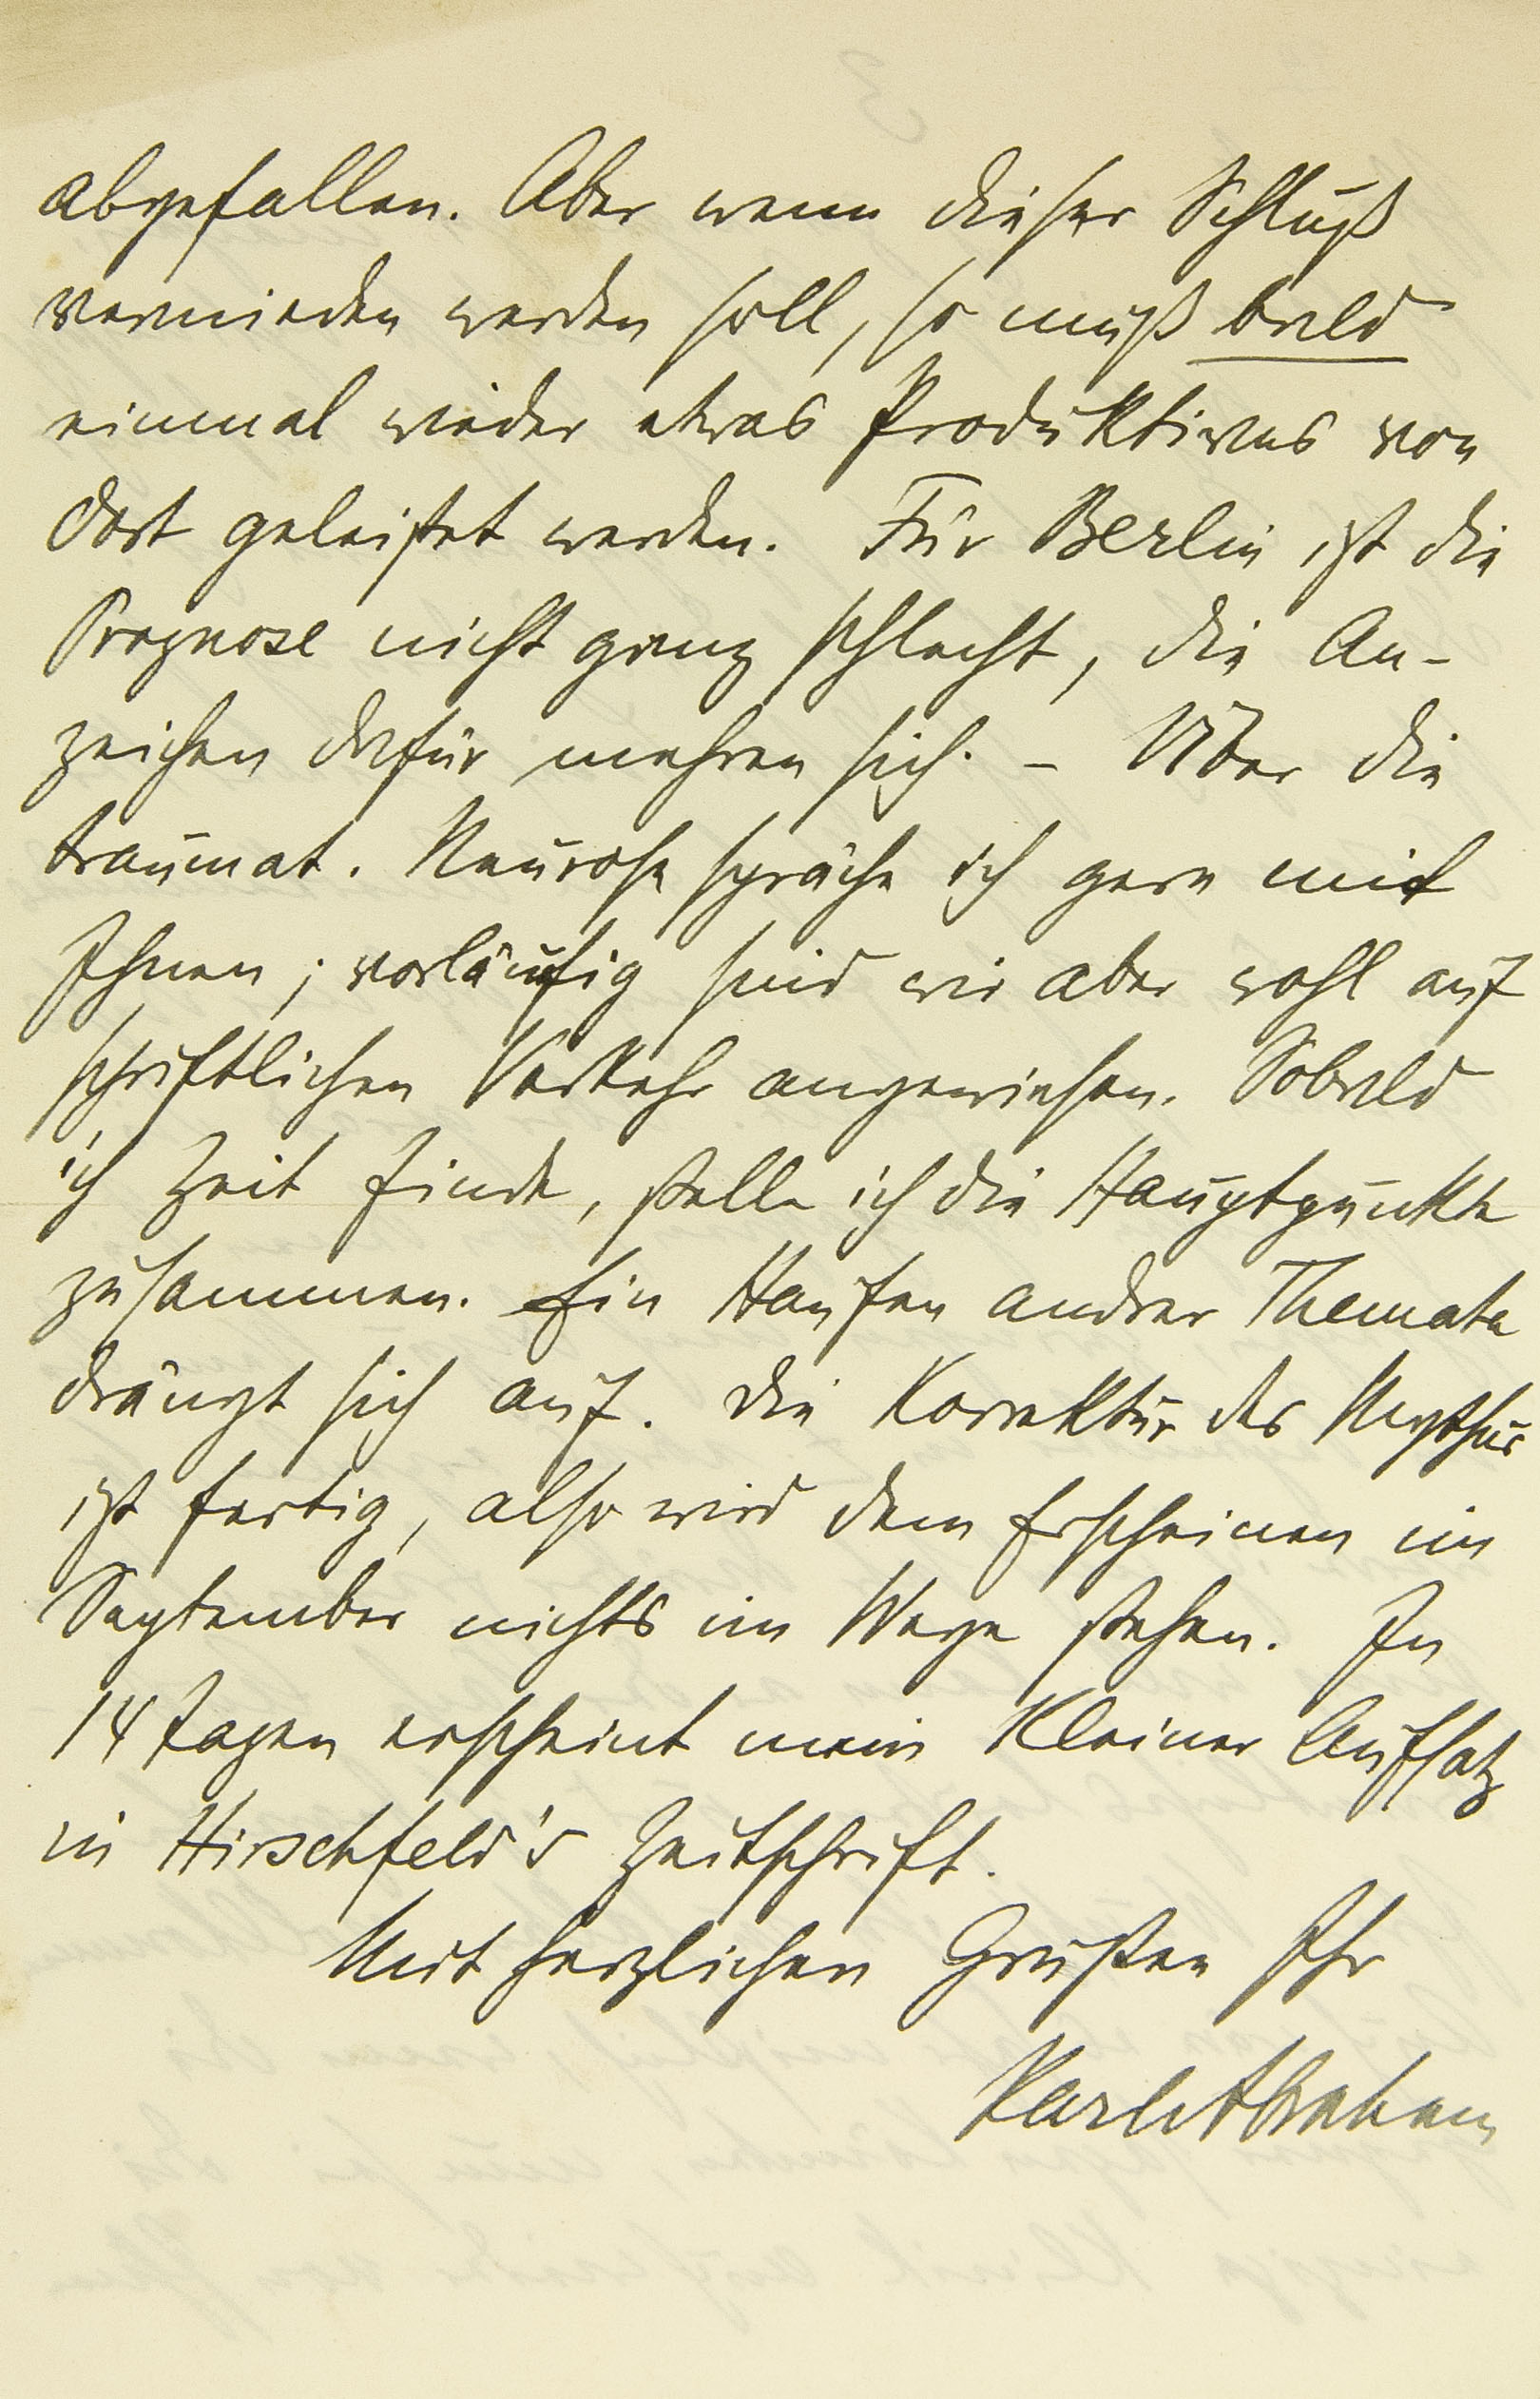 abgefallen. Aber wenn dieser Schluß
vermieden werden soll, so muß bald
einmal wieder etwas Produktives von
dort geleistet werden. Für Berlin ist die
Prognose nicht ganz schlecht, die An-
zeichen dafür mehren sich. – Über die
traumat. Neurose spräche ich gern mit
Ihnen; vorläufig sind wir aber wohl auf
schriftlichen Verkehr angewiesen. Sobald
ich Zeit finde, stelle ich die Hauptpunkte
zusammen. Ein Haufen andrer Themata
drängt sich auf. Die Korrektur des Mythus
ist fertig, also wird dem Erscheinen im
September nichts im Wege stehen. In
14 Tagen erscheint mein kleiner Aufsatz
in Hirschfeld's Zeitschrift.
Mit herzlichen Grüßen Ihr
Karl Abraham